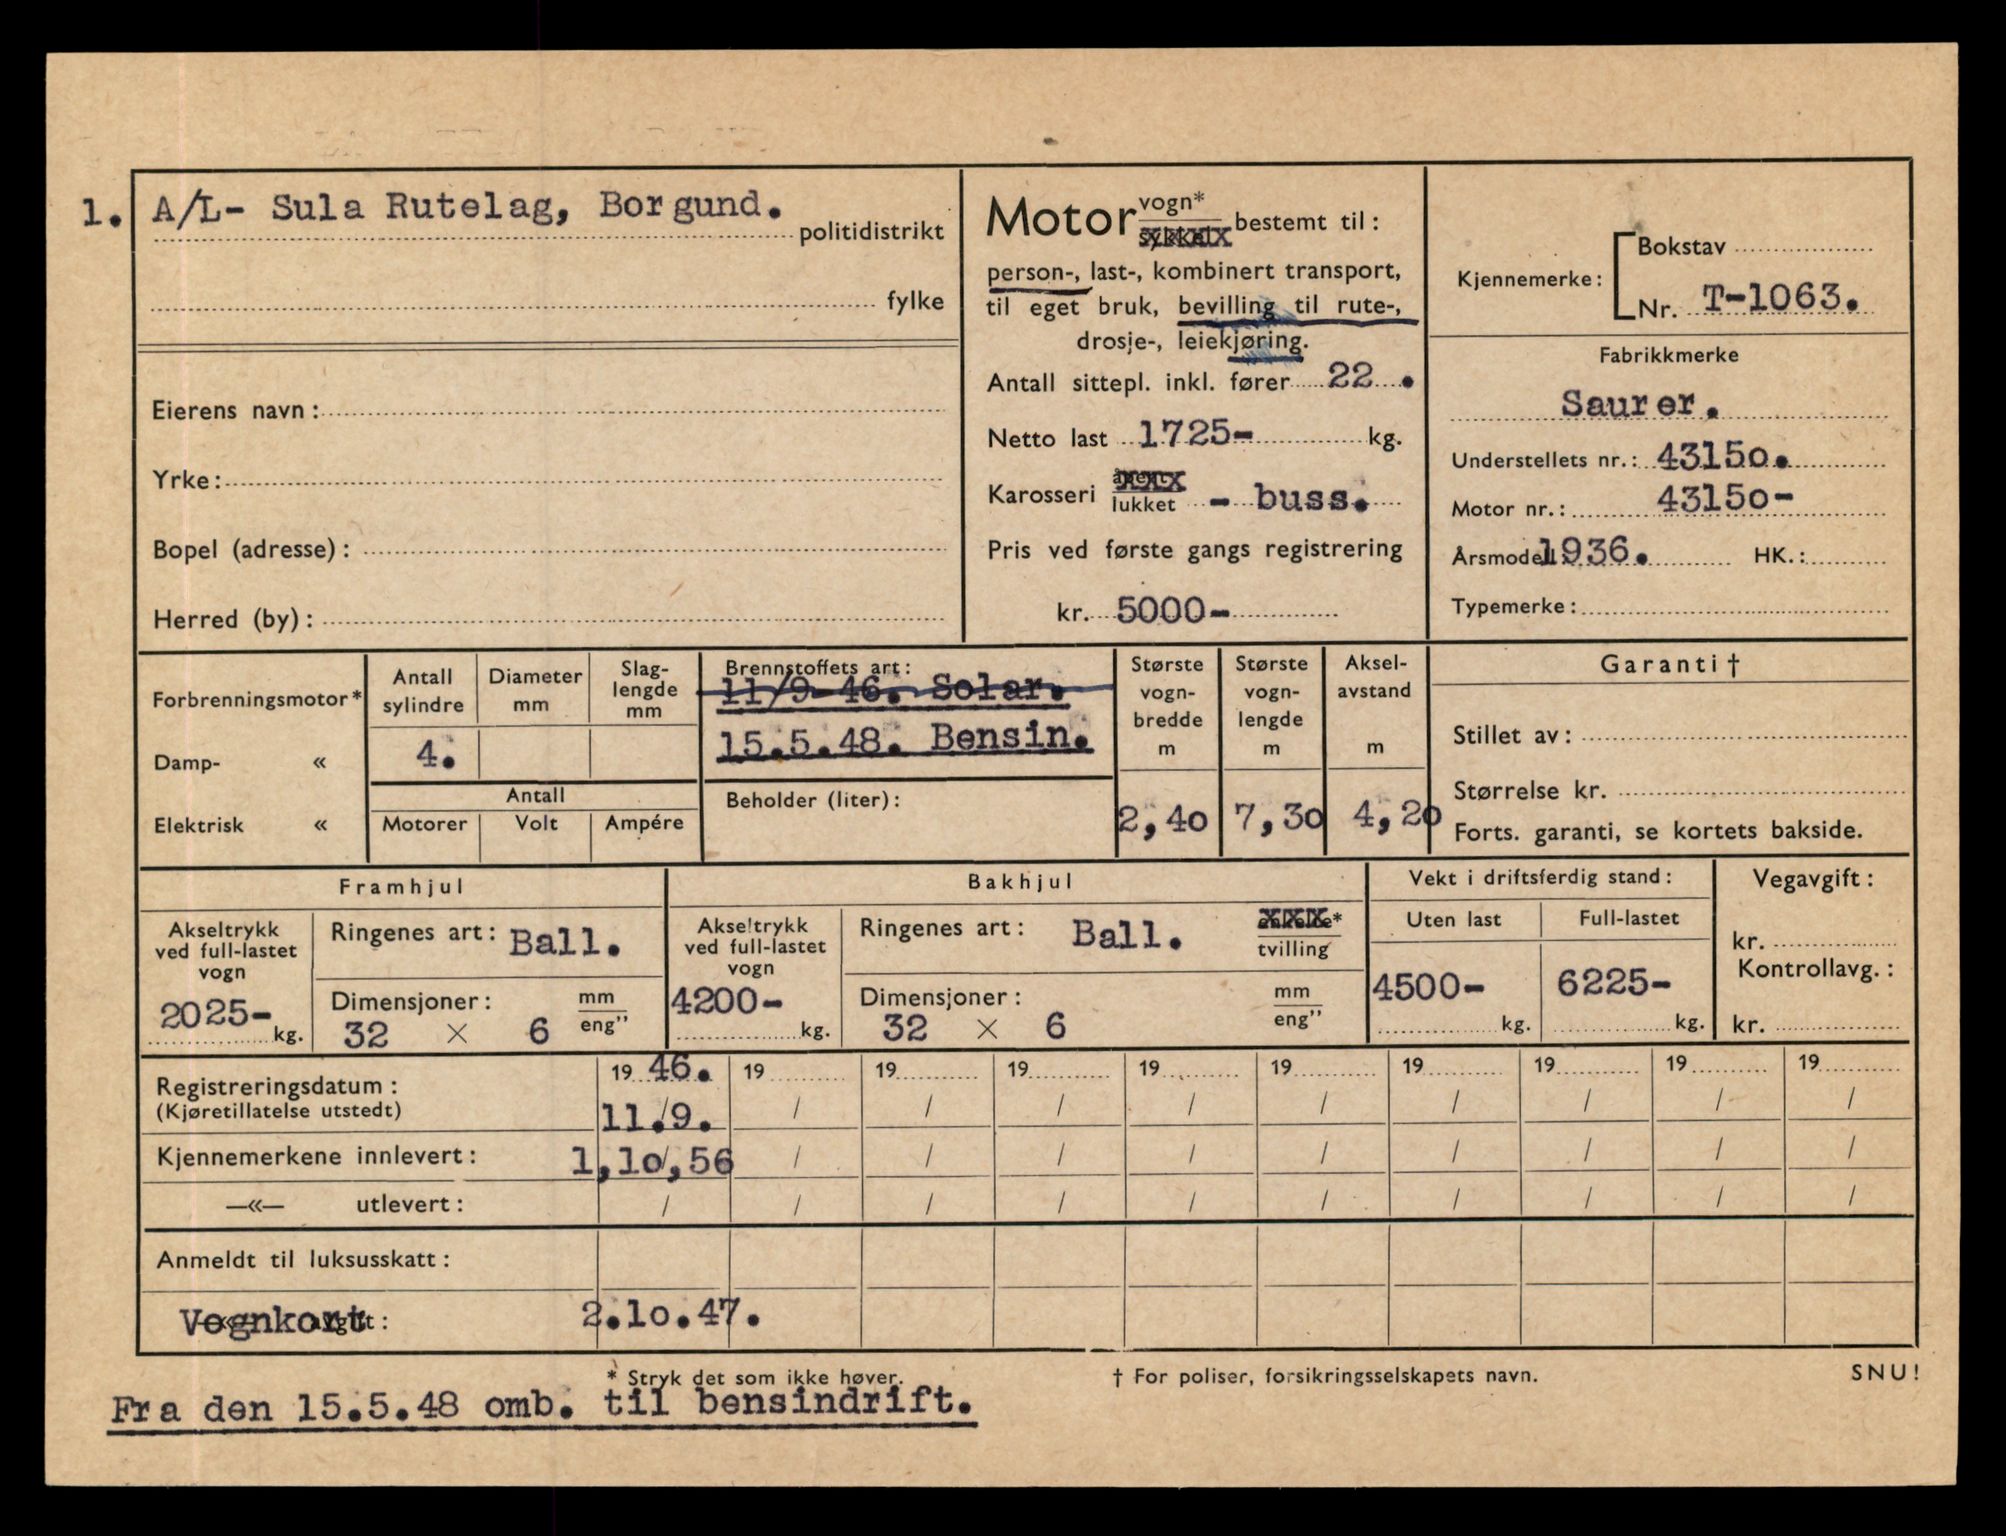 1. A/L- Sula Rutelag, Borgund.
politidistrikt
fylke
Eierens navn:
Yrke:
Bopel (adresse):
Herred (by):
Motor vogn*
bestemt til:
person-, last-, kombinert transport,
til eget bruk, bevilling til rute-,
drosje-, leiekjøring.
Antall sittepl. inkl. fører 22.
Netto last 1725- kg.
Karosseri lukket - buss.
Pris ved første gangs registrering
kr. 5000-
Kjennemerke: Bokstav
Nr. T-1063.
Fabrikkmerke
Saurer.
Understellets nr.: 43150.
Motor nr.: 43150-
Årsmodell 1936. HK.:
Typemerke:
Forbrenningsmotor*
Damp- «
Elektrisk «
Antall sylindre
Diameter mm
Slag-
lengde
mm
4.
Antall
Motorer Volt Ampére
Brennstoffets art:
11/9-46. Solar.
15.5.48. Bensin.
Beholder (liter):
Største
vogn-
bredde
m
2,40
Største
vogn-
lengde
m
7,30
Aksel-
avstand
m
4,20
Garanti†
Stillet av:
Størrelse kr.
Forts. garanti, se kortets bakside.
Framhjul
Akseltrykk
ved full-lastet
vogn
2025-
kg.
Ringenes art: Ball.
Dimensjoner: mm
eng"
32 × 6
Bakhjul
Akseltrykk
ved full-lastet
vogn
4200-
kg.
Ringenes art: Ball.
tvilling
Dimensjoner: mm
eng"
32 × 6
Vekt i driftsferdig stand:
Uten last Full-lastet
4500- 6225-
kg. kg.
Vegavgift:
kr.
Kontrollavg.:
kr.
Registreringsdatum: 19 46. 19 19 19 19 19 19 19 19 19
(Kjøretillatelse utstedt) 11./9. / / / / / / / / /
Kjennemerkene innlevert: 1,10,56 / / / / / / / / /
—«— utlevert: / / / / / / / / / /
Anmeldt til luksusskatt:
Vognkort : 2.10.47.
* Stryk det som ikke høver. † For poliser, forsikringsselskapets navn. SNU!
Fra den 15.5.48 omb. til bensindrift.